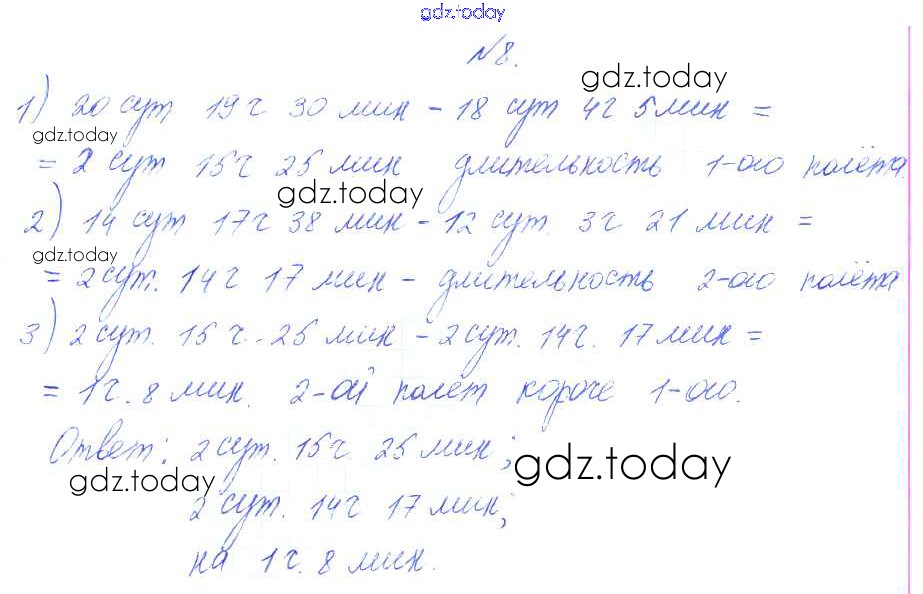 gdz.today
№8.
gdz.today
1) 20 сут 19 ч 30 мин - 18 сут 4 ч 5 мин =
gdz.today
= 2 сут 15 ч 25 мин длительность 1-ого полёта.
gdz.today
2) 14 сут 17 ч 38 мин - 12 сут. 3 ч 21 мин =
gdz.today
= 2 сут. 14 ч 17 мин - длительность 2-ого полёта
3) 2 сут. 15 ч. 25 мин - 2 сут. 14 ч. 17 мин =
= 1 ч. 8 мин. 2-ой полёт короче 1-ого.
Ответ: 2 сут. 15 ч 25 мин;
gdz.today
gdz.today
2 сут. 14 ч 17 мин;
на 1 ч. 8 мин.